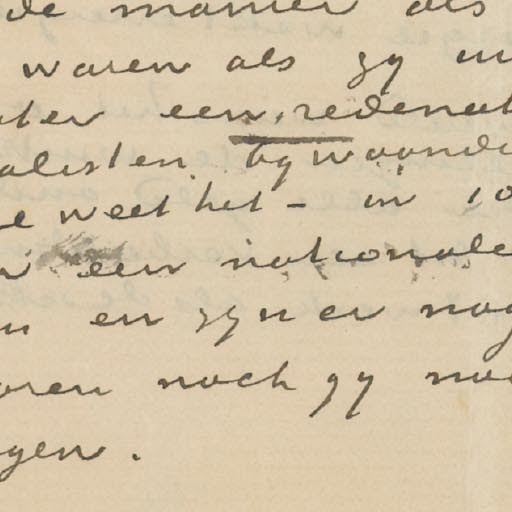 de manier als
waren als zy in
ter een redenat
alisten bywoond
e weet het - in 10
een nationale
n en zyn er nog
oren noch gy no
gen.